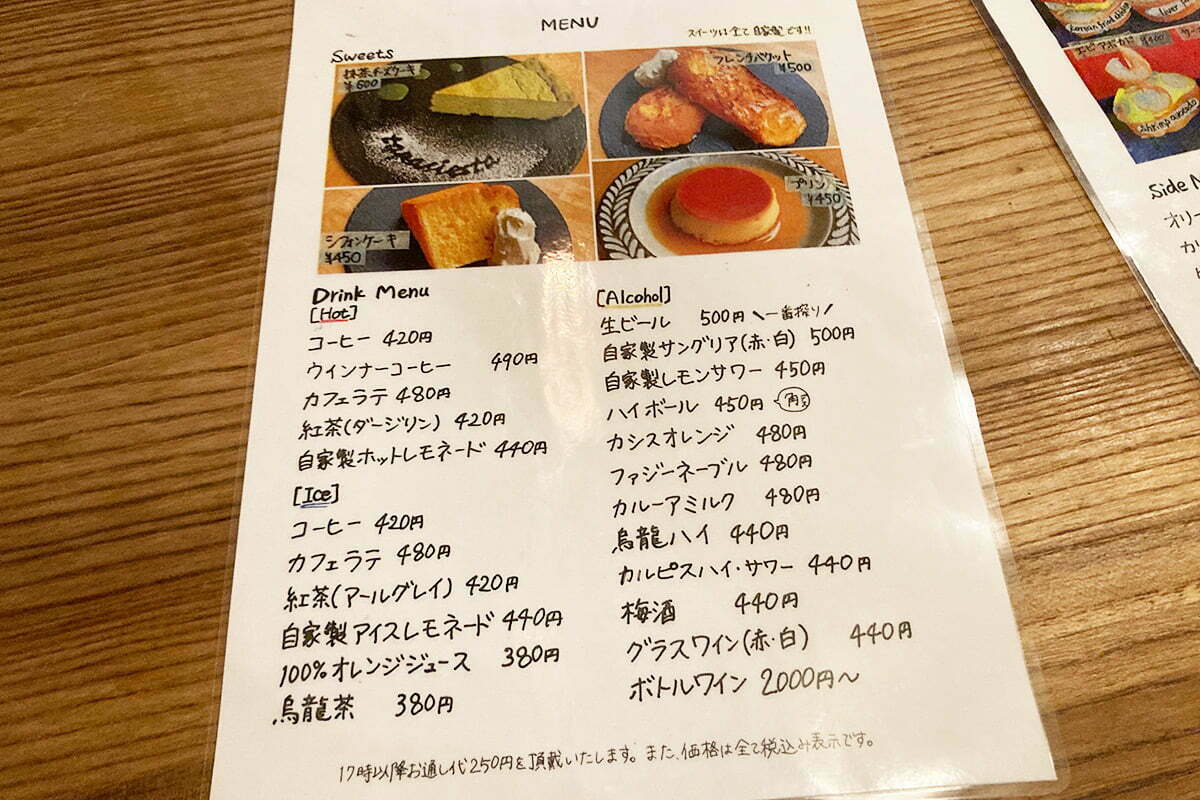 MENU
スイーツは全て自家製です!!
Sweets
抹茶チーズケーキ
¥600
フレンチバケット
¥500
シフォンケーキ
¥450
プリン
¥450
Drink Menu
[Hot]
コーヒー 420円
ウインナーコーヒー 490円
カフェラテ 480円
紅茶(ダージリン) 420円
自家製ホットレモネード 440円
[Ice]
コーヒー 420円
カフェラテ 480円
紅茶(アールグレイ) 420円
自家製アイスレモネード 440円
100%オレンジジュース 380円
烏龍茶 380円
[Alcohol]
生ビール 500円 \一番搾り/
自家製サングリア(赤・白) 500円
自家製レモンサワー 450円
ハイボール 450円
カシスオレンジ 480円
ファジーネーブル 480円
カルーアミルク 480円
烏龍ハイ 440円
カルピスハイ・サワー 440円
梅酒 440円
グラスワイン(赤・白) 440円
ボトルワイン 2000円~
17時以降お通し代250円を頂戴いたします。また、価格は全て税込み表示です。
エビアボカド
shrimp avocado
Side
オリー
カ